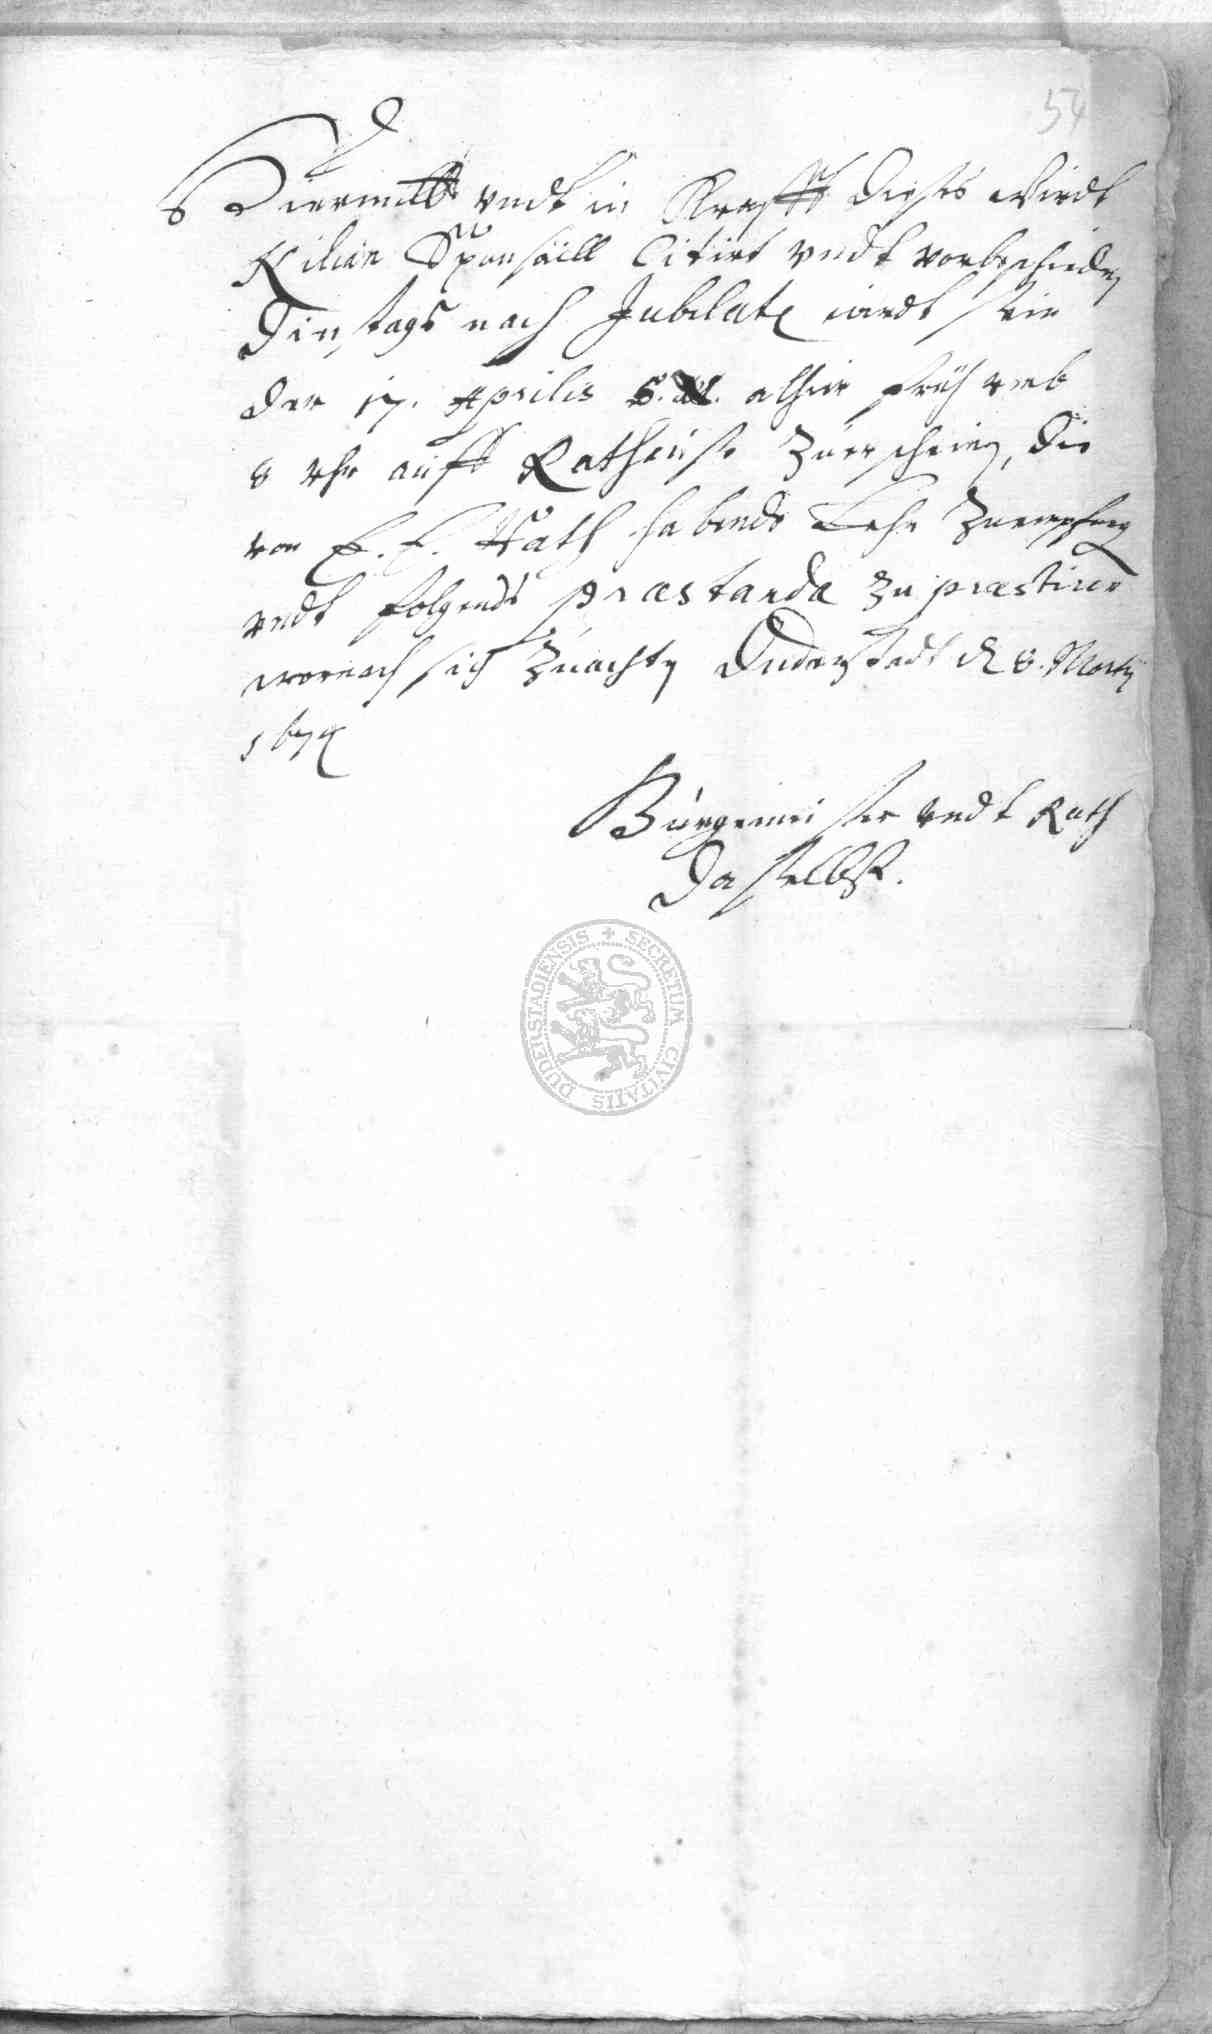 54
Hiermitt vndt in Krafft dieses wirdt
Kilian Sponsaill Citirt vndt vorbescheiden
Dinstags nach Jubilate wirdt sein
der 17. Aprilis alhier früh vmb
8 Vhr auffs Rathauß zuerscheinen, die
von E. E. Rath habende Lehn zuempfangen
vndt folgends præstanda zu præstiren
wornach sich zuachten Duderstadt d 8. Martij
1674
Bürgemeister vndt Rath
Daselbst.
SECRETUM CIVITATIS DUDERSTADIENSIS